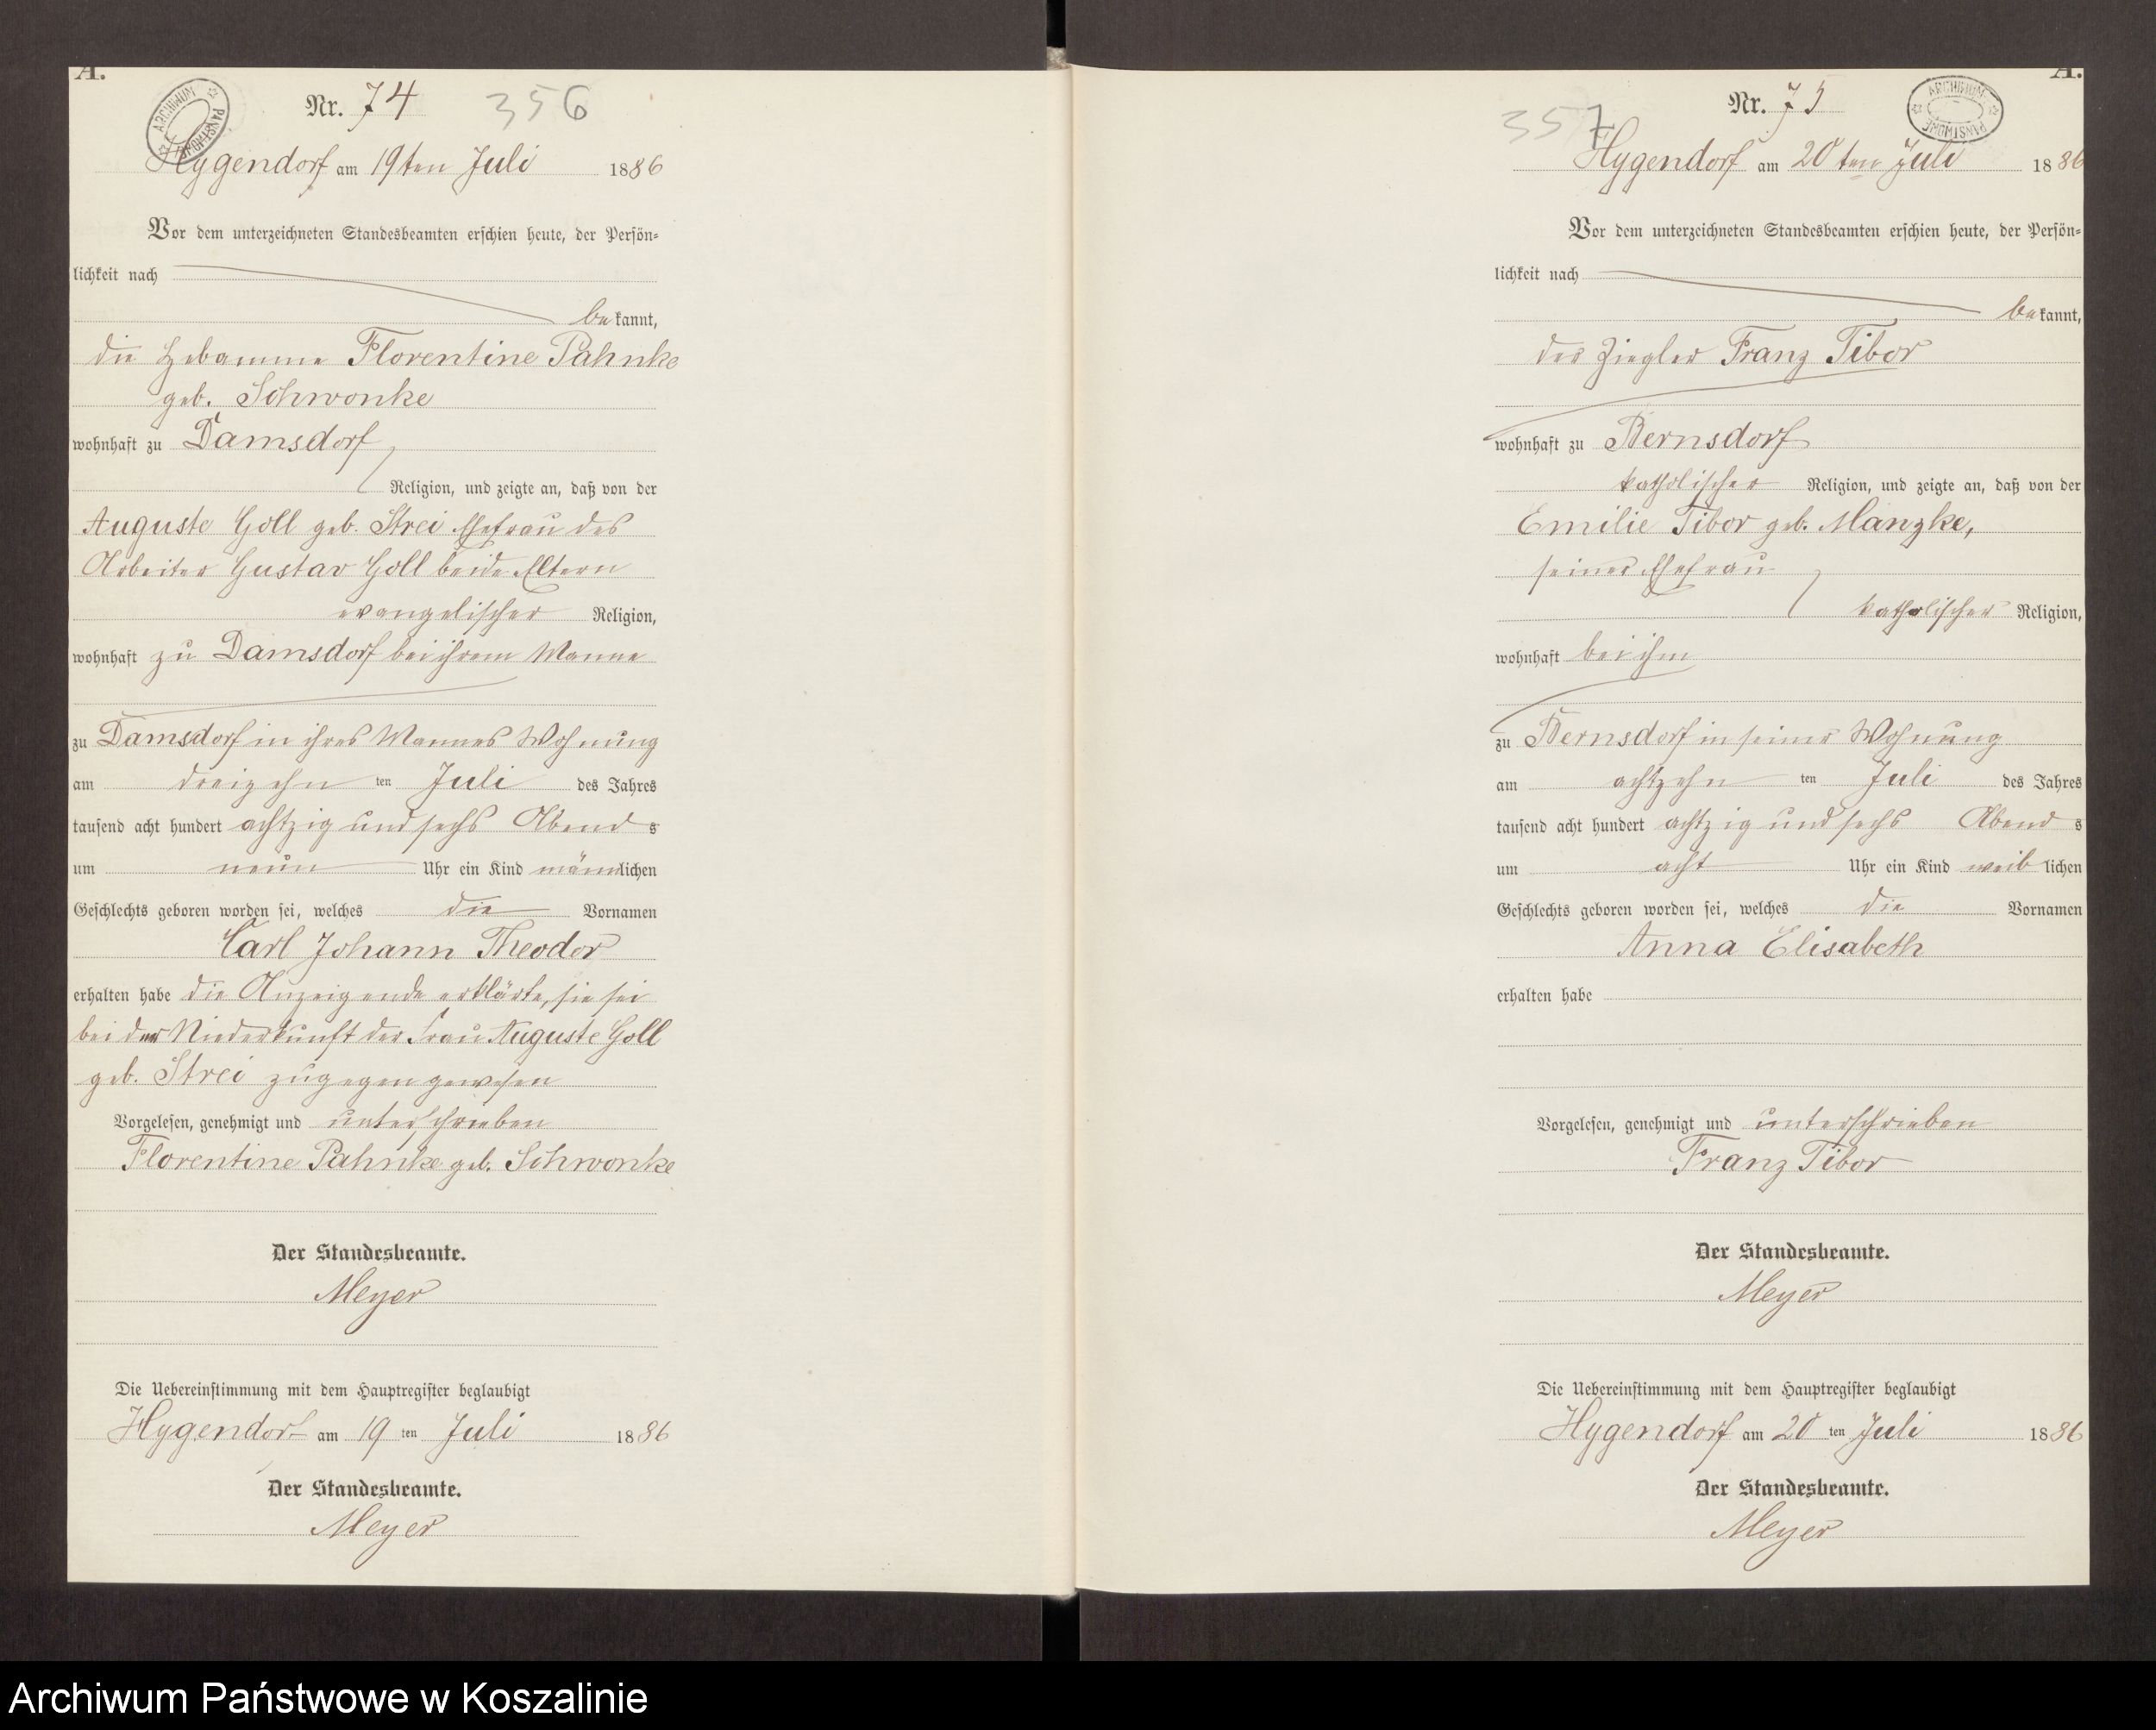 A.
ARCHIWUM PAŃSTWOWE
Nr. 74 356
Hygendorf am 19ten Juli 1886
Vor dem unterzeichneten Standesbeamten erschien heute, der Persön=
lichkeit nach
bekannt,
die Hebamme Florentine Pahnke
geb. Schwonke
wohnhaft zu Damsdorf
Religion, und zeigte an, daß von der
Auguste Goll geb. Strei Ehefrau des
Arbeiter Gustav Goll beide Eltern
evangelischer Religion,
wohnhaft zu Damsdorf bei ihrem Manne
zu Damsdorf in ihres Mannes Wohnung
am dreizehn ten Juli des Jahres
tausend acht hundert achtzig und sechs Abends
um neun Uhr ein Kind männlichen
Geschlechts geboren worden sei, welches die Vornamen
Carl Johann Theodor
erhalten habe die Anzeigende erklärte, sie sei
bei der Niederkunft der Frau Auguste Goll
geb. Strei zugegen gewesen
Vorgelesen, genehmigt und unterschrieben
Florentine Pahnke geb. Schwonke
Der Standesbeamte.
Meyer
Die Uebereinstimmung mit dem Hauptregister beglaubigt
Hygendorf am 19 ten Juli 1886
Der Standesbeamte.
Meyer
A.
357 Nr. 75
ARCHIWUM PAŃSTWOWE
Hygendorf am 20ten Juli 1886
Vor dem unterzeichneten Standesbeamten erschien heute, der Persön=
lichkeit nach
bekannt,
der Ziegler Franz Tibor
wohnhaft zu Bernsdorf
katholischer Religion, und zeigte an, daß von der
Emilie Tibor geb. Manzke,
seiner Ehefrau
katholischer Religion,
wohnhaft bei ihm
zu Bernsdorf in seiner Wohnung
am achtzehn ten Juli des Jahres
tausend acht hundert achtzig und sechs Abends
um acht Uhr ein Kind weiblichen
Geschlechts geboren worden sei, welches die Vornamen
Anna Elisabeth
erhalten habe
Vorgelesen, genehmigt und unterschrieben
Franz Tibor
Der Standesbeamte.
Meyer
Die Uebereinstimmung mit dem Hauptregister beglaubigt
Hygendorf am 20 ten Juli 1886
Der Standesbeamte.
Meyer
Archiwum Państwowe w Koszalinie